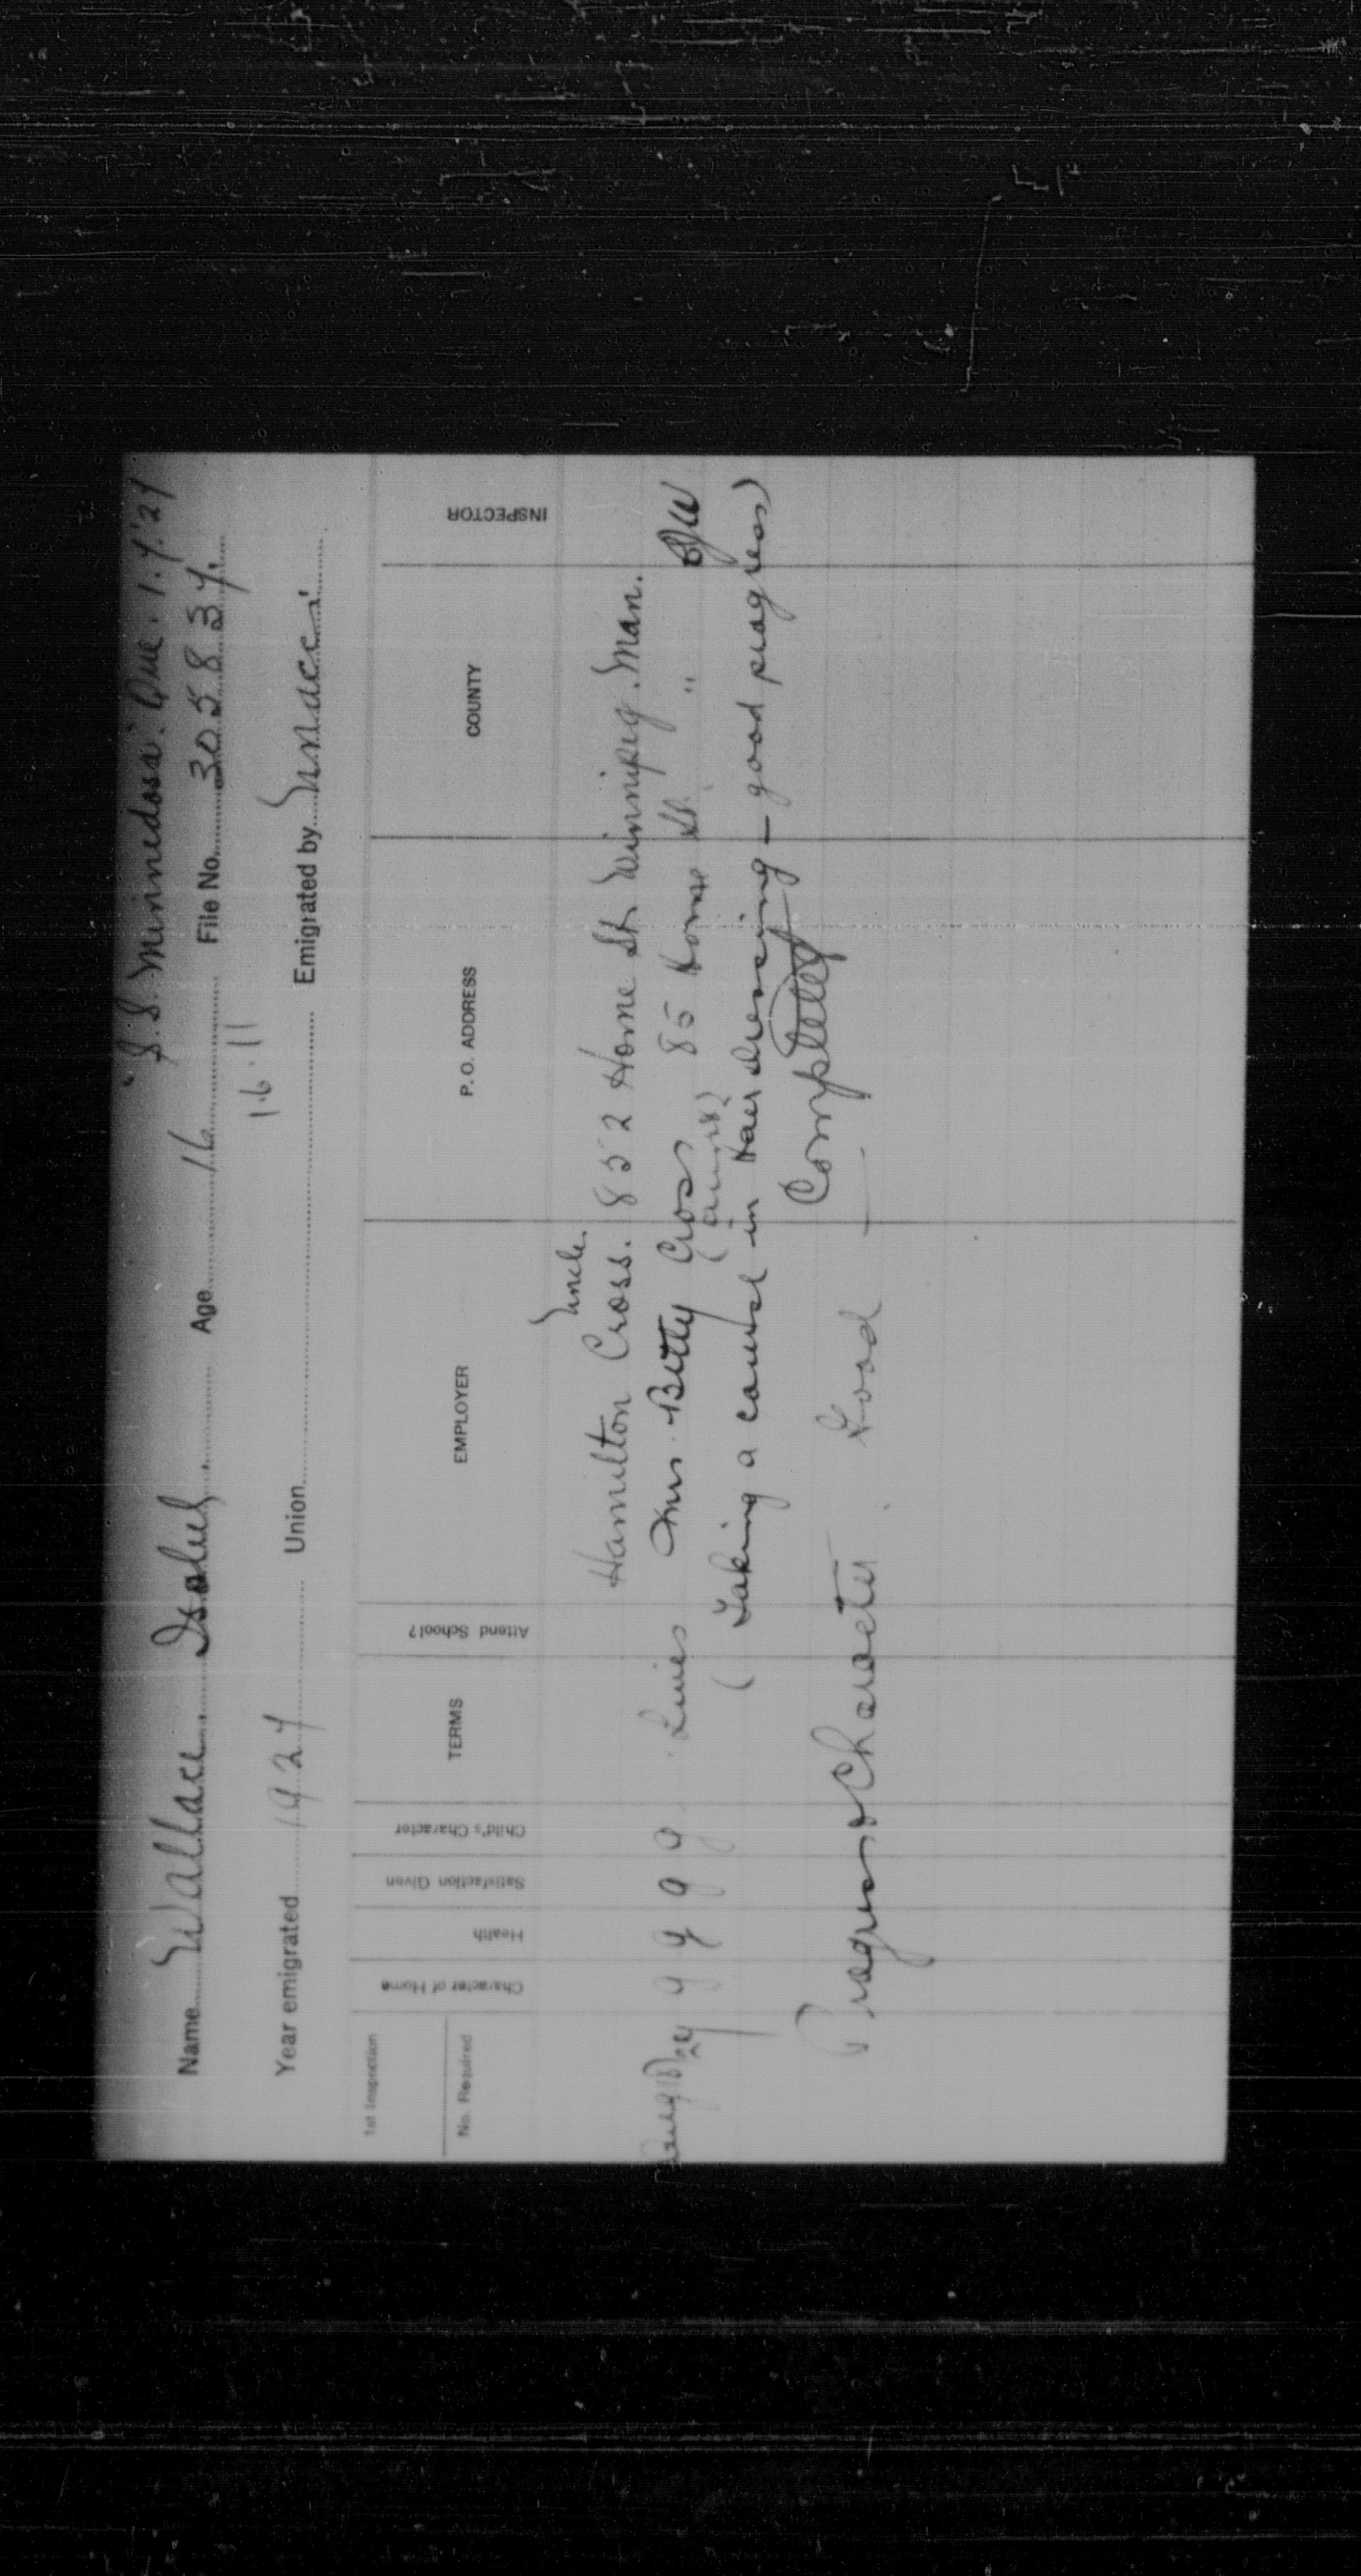 "S.S. Minnedosa" Que. 1.7.'27
Name Wallace Isabel Age 16 File No. 305837.
16.11
Year emigrated 1927 Union Emigrated by Unacc'
1st Inspection
No. Required Character of Home Health Satisfaction Given Child's Character TERMS Attend School? EMPLOYER P. O. ADDRESS COUNTY INSPECTOR
Uncle.
Hamilton Cross. 852 Home St. Winnipeg. Man.
g g g g Lives Mrs. Betty Cross 85 Home St. "
(aunt)
(Taking a course in Hairdressing — good progress)
Completed
Progress & Character Good —